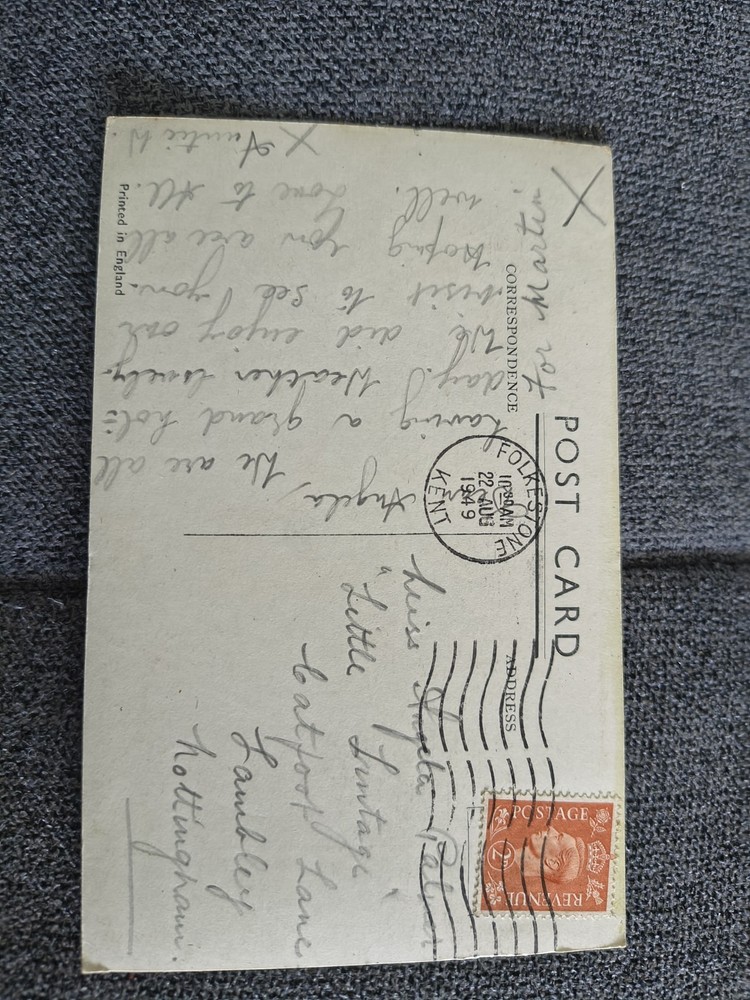 POST CARD
CORRESPONDENCE
ADDRESS
For Martin.
X
Dear Angela,
We are all
having a grand holi=
day. Weather lovely.
We did enjoy our
visit to see you.
Hoping you are all
well. Love to All.
X Auntie W.
Printed in England
FOLKESTONE
10:30 AM
22 AUG
1949
KENT
POSTAGE
2D
REVENUE
Miss Angela
"Little Lintage"
Catfoot Lane
Lambley
Nottingham.